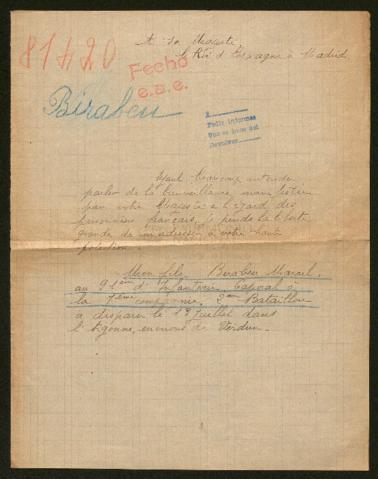 81420
A Sa Majesté
le Roi d'Espagne à Madrid
Fecho
e.a.e.
Birabeu
Pedir informes
Ayant beaucoup entendu
parler de la bienveillance
par votre Majesté à l'égard des
prisonniers français, je prends la liberté
grande de m'adresser à votre haute
protection
Mon fils, Birabeu Marcel,
au 91ème d'Infanterie, Caporal à
la 7ème compagnie, 2me Bataillon
a disparu le 19 juillet dans
l'Argonne, environs de Verdun.